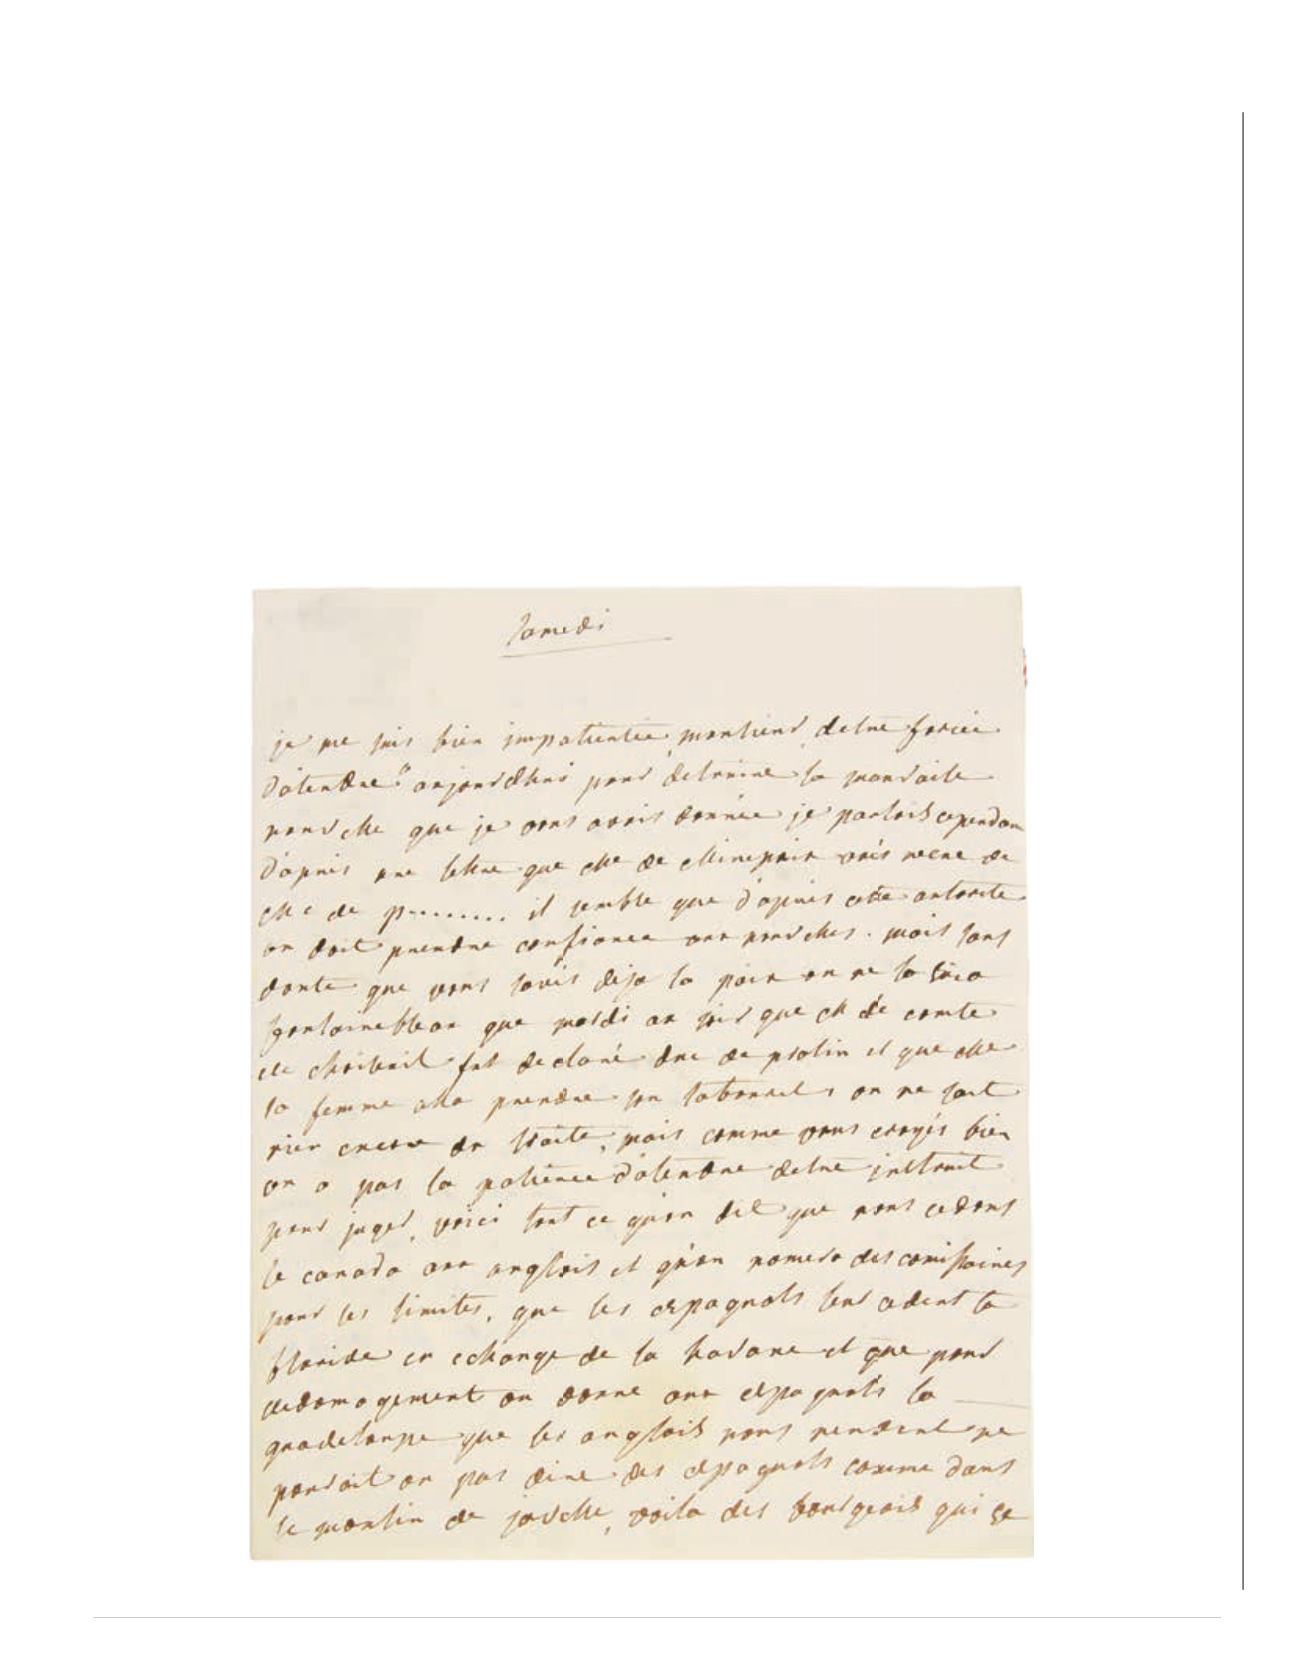 Samedi
je me suis bien impatientée, monsieur, detre forcée
d'atendre a aujourdhui pour detruire la mauvaise
nouvelle que je vous avois donnée je parlois cependan
d'apres une lettre que de avoit de
de p........ il semble que d'apres cette autorité
on doit prendre confiance aux nouvelles. mais sans
doute que vous savés deja la paix on ne la sceu a
fontainebleau que mardi au soir que mr le comte
de choiseuil fut declaré duc de praslin et que
sa femme alla prendre son tabouret, on ne sait
rien encore du traité, mais comme vous croyés bien
on a pas la patience d'atendre detre instruit
pour juger, voici tout ce qu'on dit que nous cedons
le canada aux anglois et qu'on nomera des comissaires
pour les limites, que les espagnols leur cedent la
floride en echange de la havane et que pour
dedomagement on donne aux espagnols la
guadeloupe que les anglois nous rendent ne
pouroit on pas dire des espagnols comme dans
le moulin de javelle, voila des bourgeois qui se